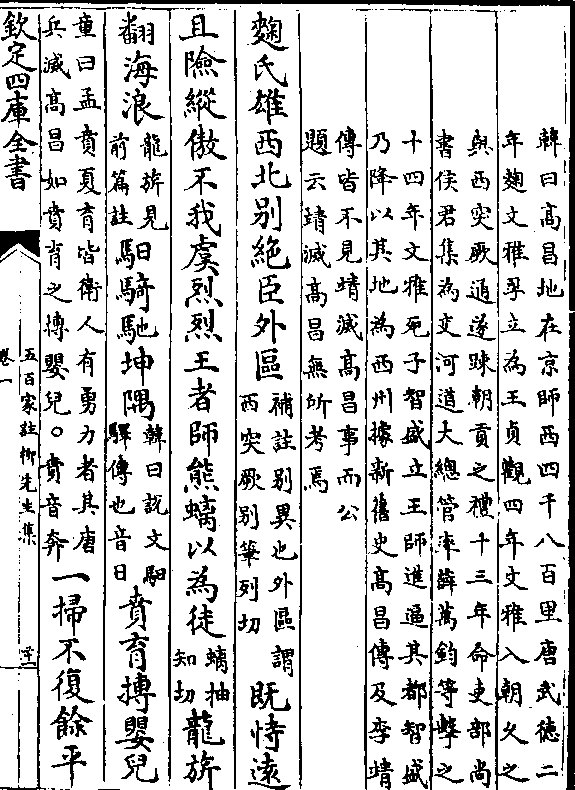 韓曰高昌地在京師西四千八百里唐武德二
年麴文雅孚立為王貞觀四年文雅入朝久之
與西突厥通遂踈朝貢之禮十三年命吏部尚
書侯君集為交河道大總管率薛萬鈞等擊之
十四年文雅死子智盛立王師進逼其都智盛
乃降以其地為西州據新舊史高昌傳及李靖
傳皆不見靖滅高昌事而公
題云靖滅高昌無所考焉
麴氏雄西北别絶臣外區補註别異也外區謂西突厥别筆列切既恃遠
且險縱傲不我虞烈烈王者師熊螭以為徒螭抽知切龍旂
翻海浪龍旂見前篇註馹騎馳坤隅韓曰説文馹驛傳也音日賁育搏嬰兒
童曰孟賁夏育皆衛人有勇力者其唐兵滅高昌如賁育之搏嬰兒○賁音奔一掃不復餘平
欽定四庫全書
五百家註柳先生集
卷一